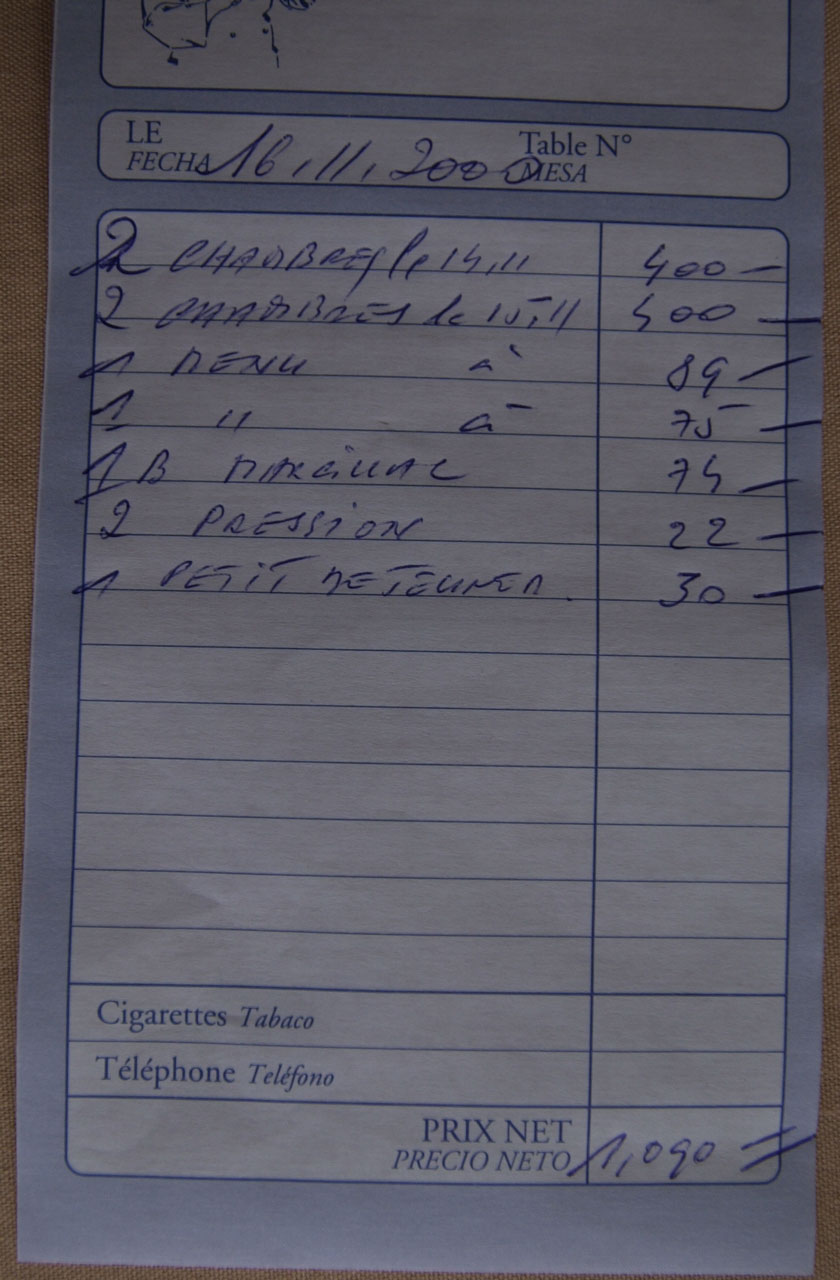 LE
FECHA 16.11.2000
Table N°
MESA
2 CHAMBRES le 14.11 400 —
2 CHAMBRES le 15.11 400 —
1 MENU à 89 —
1 " à 75 —
1 B MARCILLAC 74 —
2 PRESSION 22 —
1 PETIT DEJEUNER. 30 —
Cigarettes Tabaco
Téléphone Teléfono
PRIX NET
PRECIO NETO 1,090 =